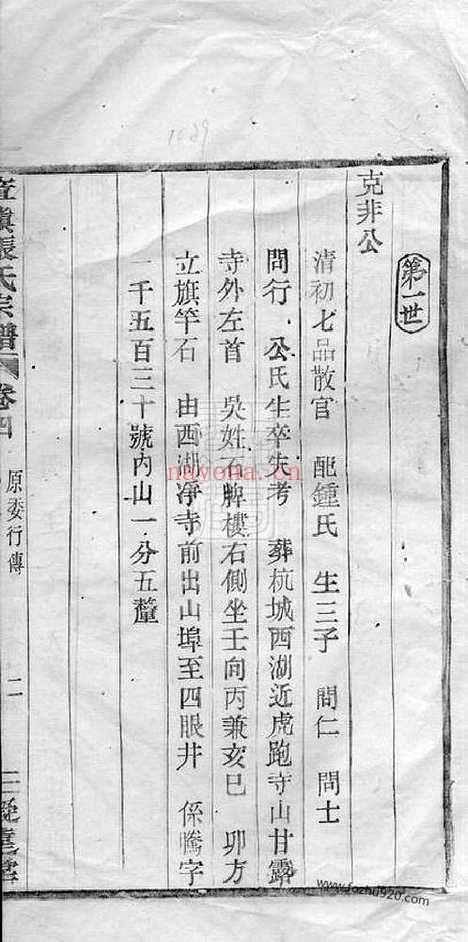 第一世
克非公
清初七品散官　配鍾氏　生三子　問仁　問士
問行　公氏生卒先考　葬杭城西湖近虎跑寺山甘露
寺外左首　吳姓石牌樓右側坐壬向丙兼亥巳　卯方
立旗竿石　由西湖凈寺前出山埠至四眼井　係騰字
一千五百三十號內山一分五釐
張氏宗譜
卷四
原委行傳
二
1089
nayona.cn
www.fozhu920.com